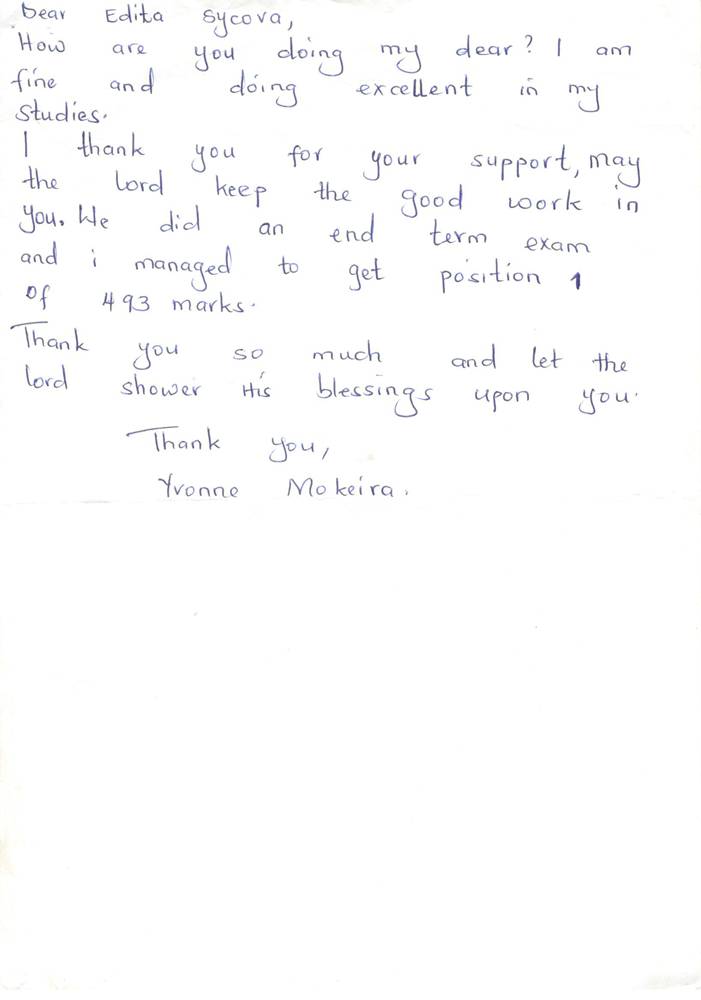 Dear Edita Sycova,
How are you doing my dear? I am
fine and doing excellent in my
studies.
I thank you for your support, may
the lord keep the good work in
you. We did an end term exam
and i managed to get position 1
of 493 marks.
Thank you so much and let the
lord shower His blessings upon you.
Thank you,
Yvonne Mokeira.